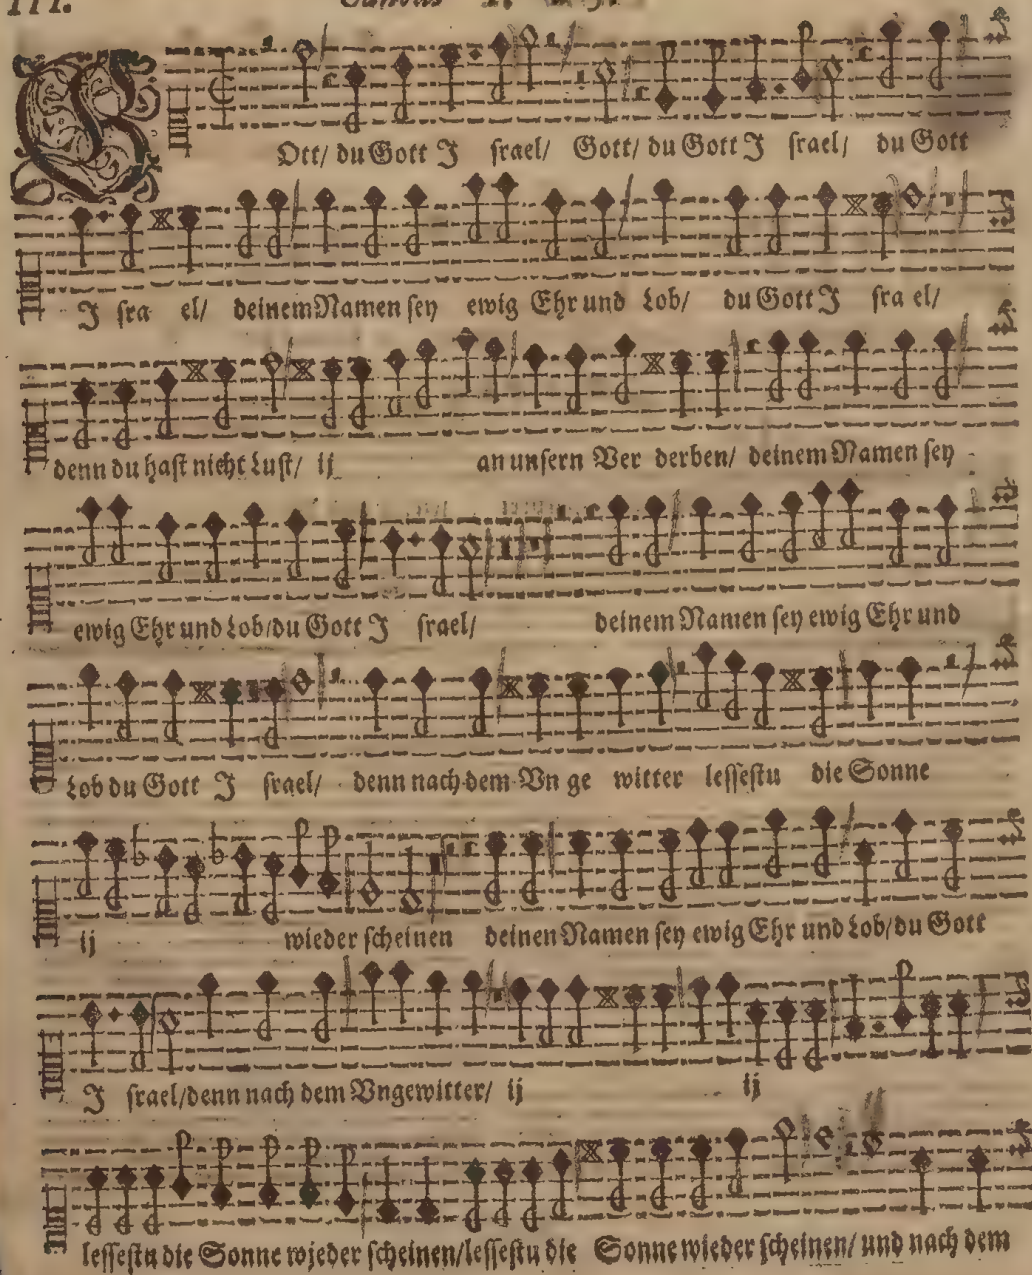 III.
GOtt/ du Gott J ſrael/ Gott/ du Gott J ſrael/ du Gott
J ſra el/ deinem Namen ſey ewig Ehr und Lob/ du Gott J ſra el/
denn du haſt nicht Luſt/ ij an unſern Ver derben/ deinem Namen ſey
ewig Ehr und Lob/du Gott J ſrael/ deinem Namen ſey ewig Ehr und
Lob du Gott J ſrael/ denn nach dem Vn ge witter leſſeſtu die Sonne
ij wieder ſcheinen deinen Namen ſey ewig Ehr und Lob/du Gott
J ſrael/denn nach dem Vngewitter/ ij ij
leſſeſtu die Sonne wieder ſcheinen/leſſeſtu die Sonne wieder ſcheinen/ und nach dem